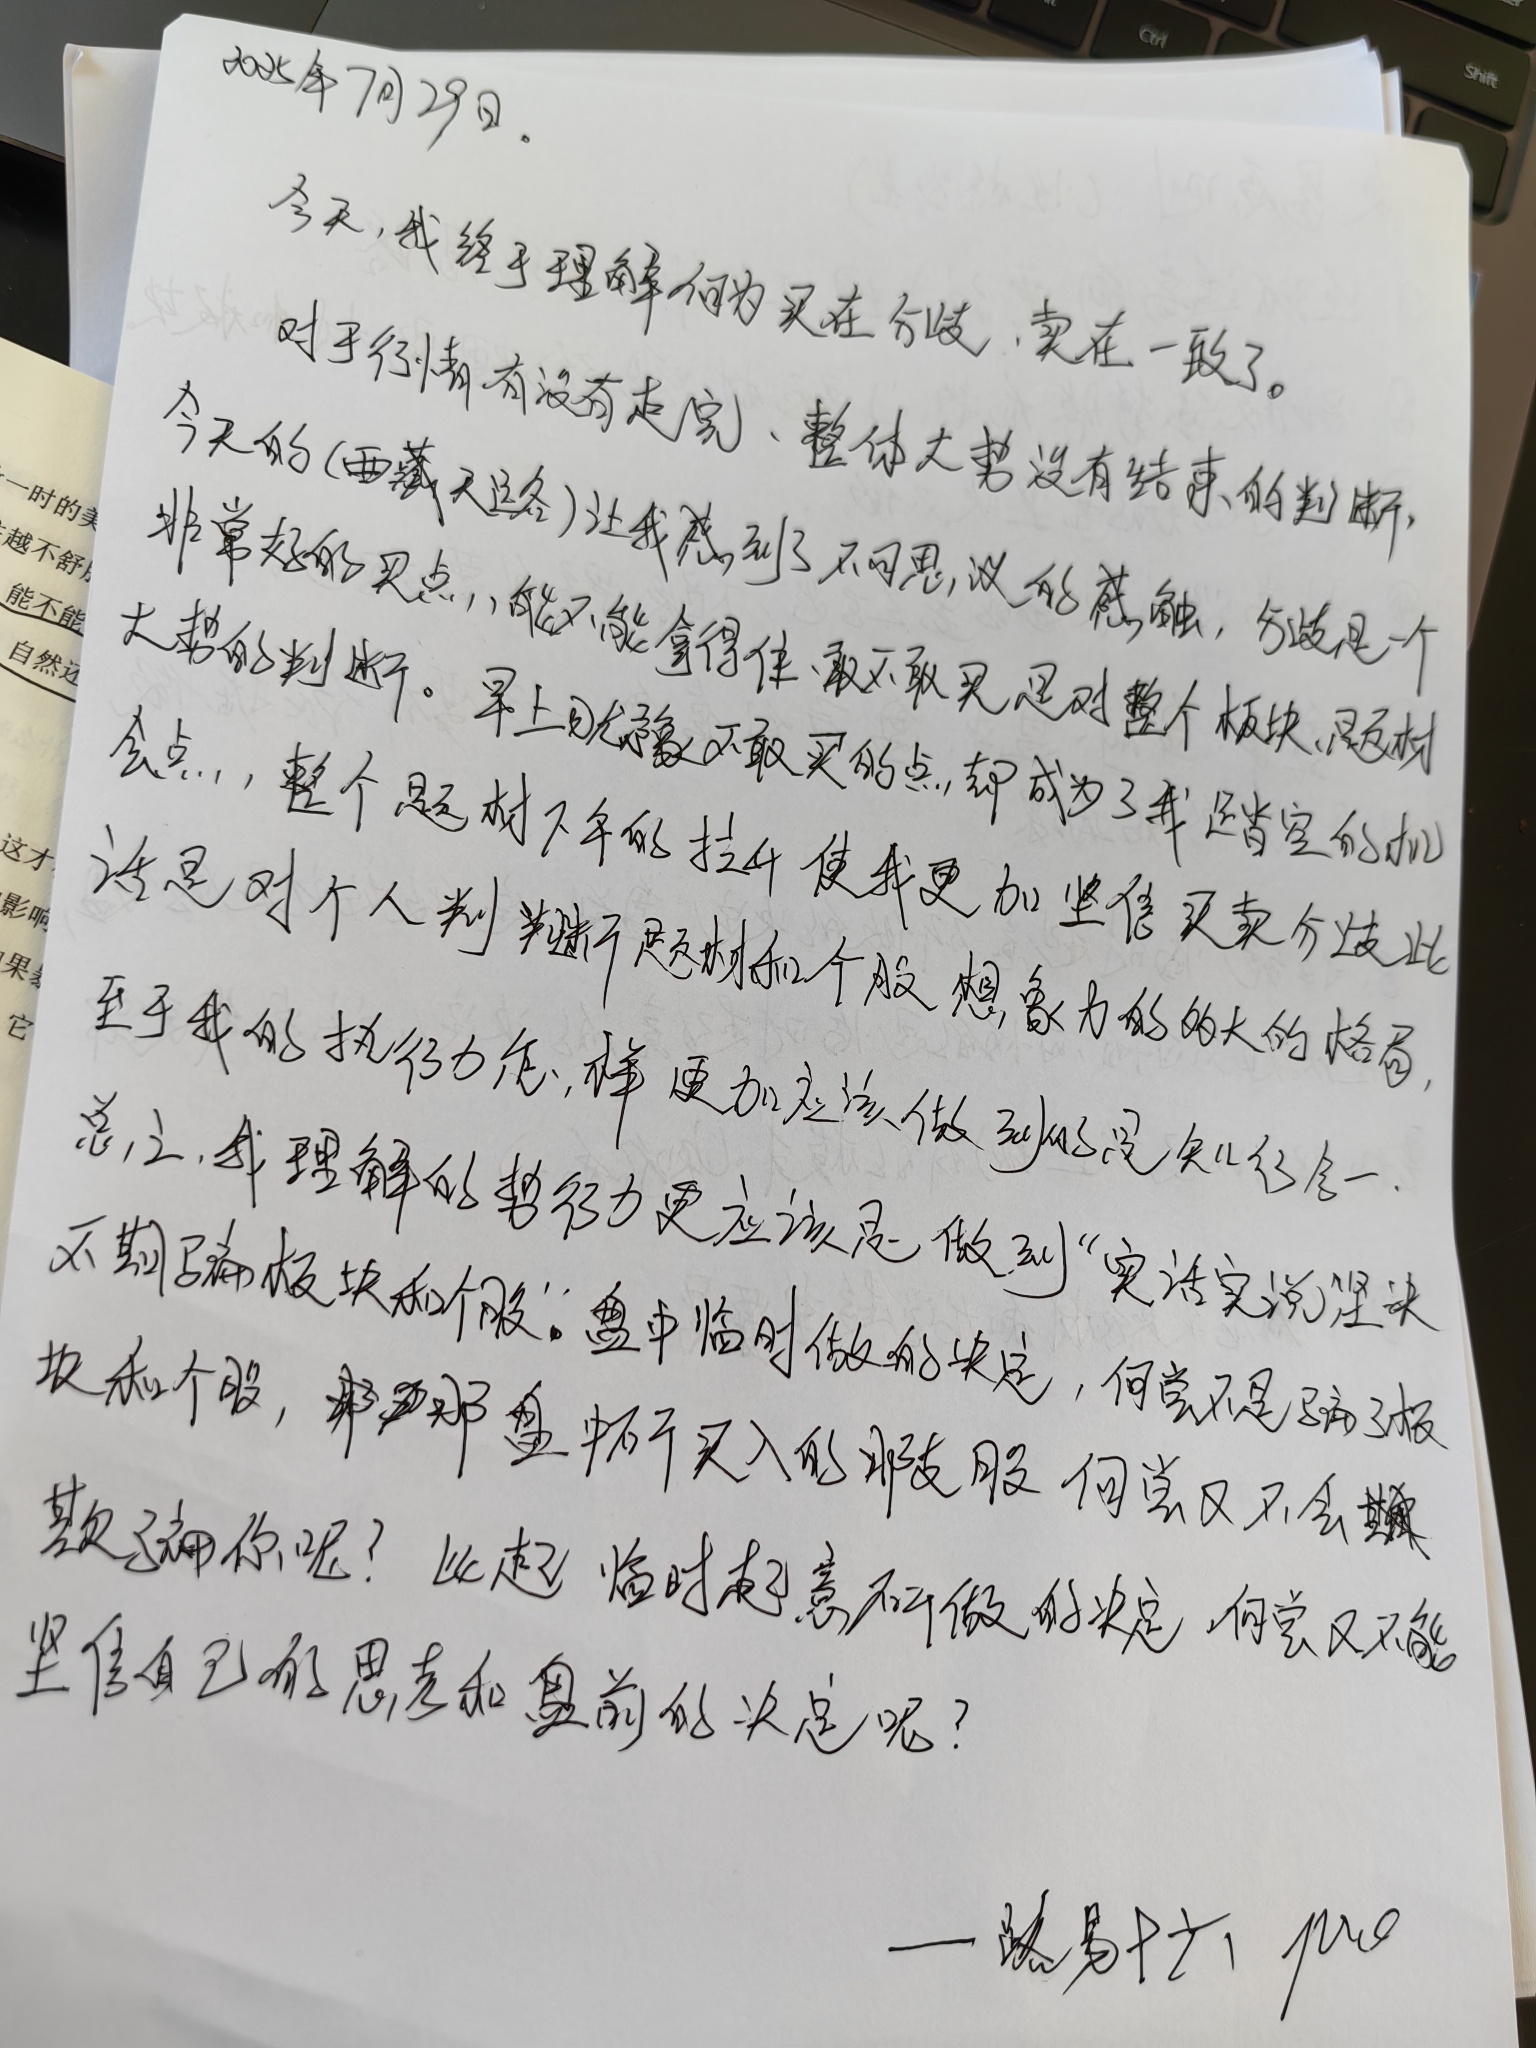 2025年7月29日。
今天,我终于理解何为买在分歧、卖在一致了。
对于行情有没有走完、整体大势没有结束的判断,
今天的(西藏天路)让我感到了不可思议的感触,分歧是一个
非常好的买点,能不能拿得住、敢不敢买是对整个板块、题材
大势的判断。早上犹豫不敢买的点,却成为了我踏空的机
会点,整个题材下午的拉升使我更加坚信买卖分歧此
话是对个人判断题材和个股想象力的的大的格局,
至于我的执行力怎样更加应该做到的是知行合一.
总之,我理解的势行力更应该是做到“实话实说坚决
不欺骗板块和个股”。盘中临时做的决定,何尝不是骗了板
块和个股,那盘中所买入的那支股何尝又不会
欺骗你呢?比起临时起意所做的决定,何尝又不能
坚信自己的思考和盘前的决定呢?
——路易十六
Ctrl
Shift
一时的美
越不舒服
能不能
自然还
这才
影响
果
它